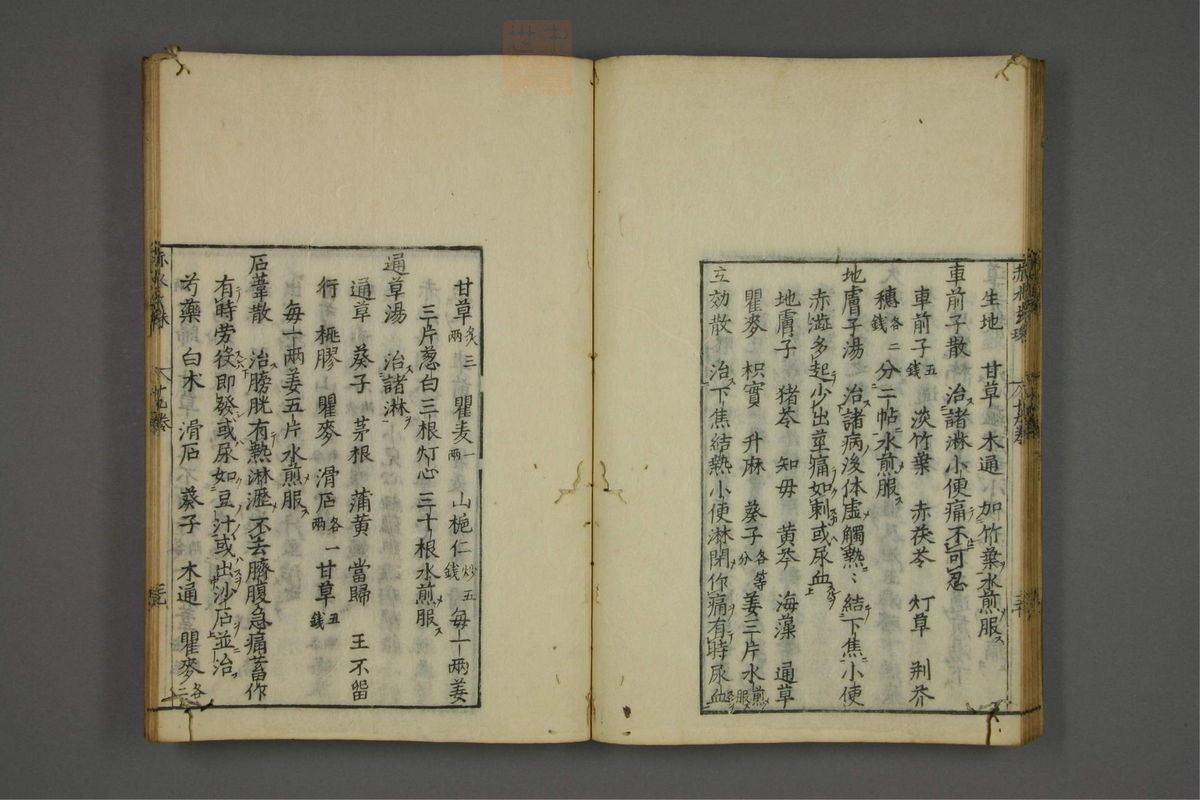 生地　甘草　木通　加竹葉水煎服
車前子散　治諸淋小便痛不可忍
車前子五錢　淡竹葉　赤茯苓　灯草　荆芥
穗各二錢　分二帖水煎服
地膚子湯　治諸病後体虛觸熱〻結下焦小便
赤澁多起少出莖痛如剌或尿血
地膚子　猪苓　知毋　黄芩　海藻　通草
瞿麥　枳實　升麻　葵子各等分　姜三片水煎服
立効散　治下焦結熱小便淋閉作痛有時尿血
甘草炙三兩　瞿麦一兩　山梔仁炒五錢　毎一兩姜
三片葱白三根灯心三十根水煎服
通草湯　治諸淋
通草　葵子　茅根　蒲黄　當歸　王不畱
行　桃膠　瞿麥　滑石各一兩　甘草五錢
毎一兩姜五片水煎服
石葦散　治膀胱有熱淋瀝不去臍腹急痛蓄作
有時劳役即發或尿如豆汁或出沙石並治
芍藥　白术　滑石　葵子　木通　瞿麥各二